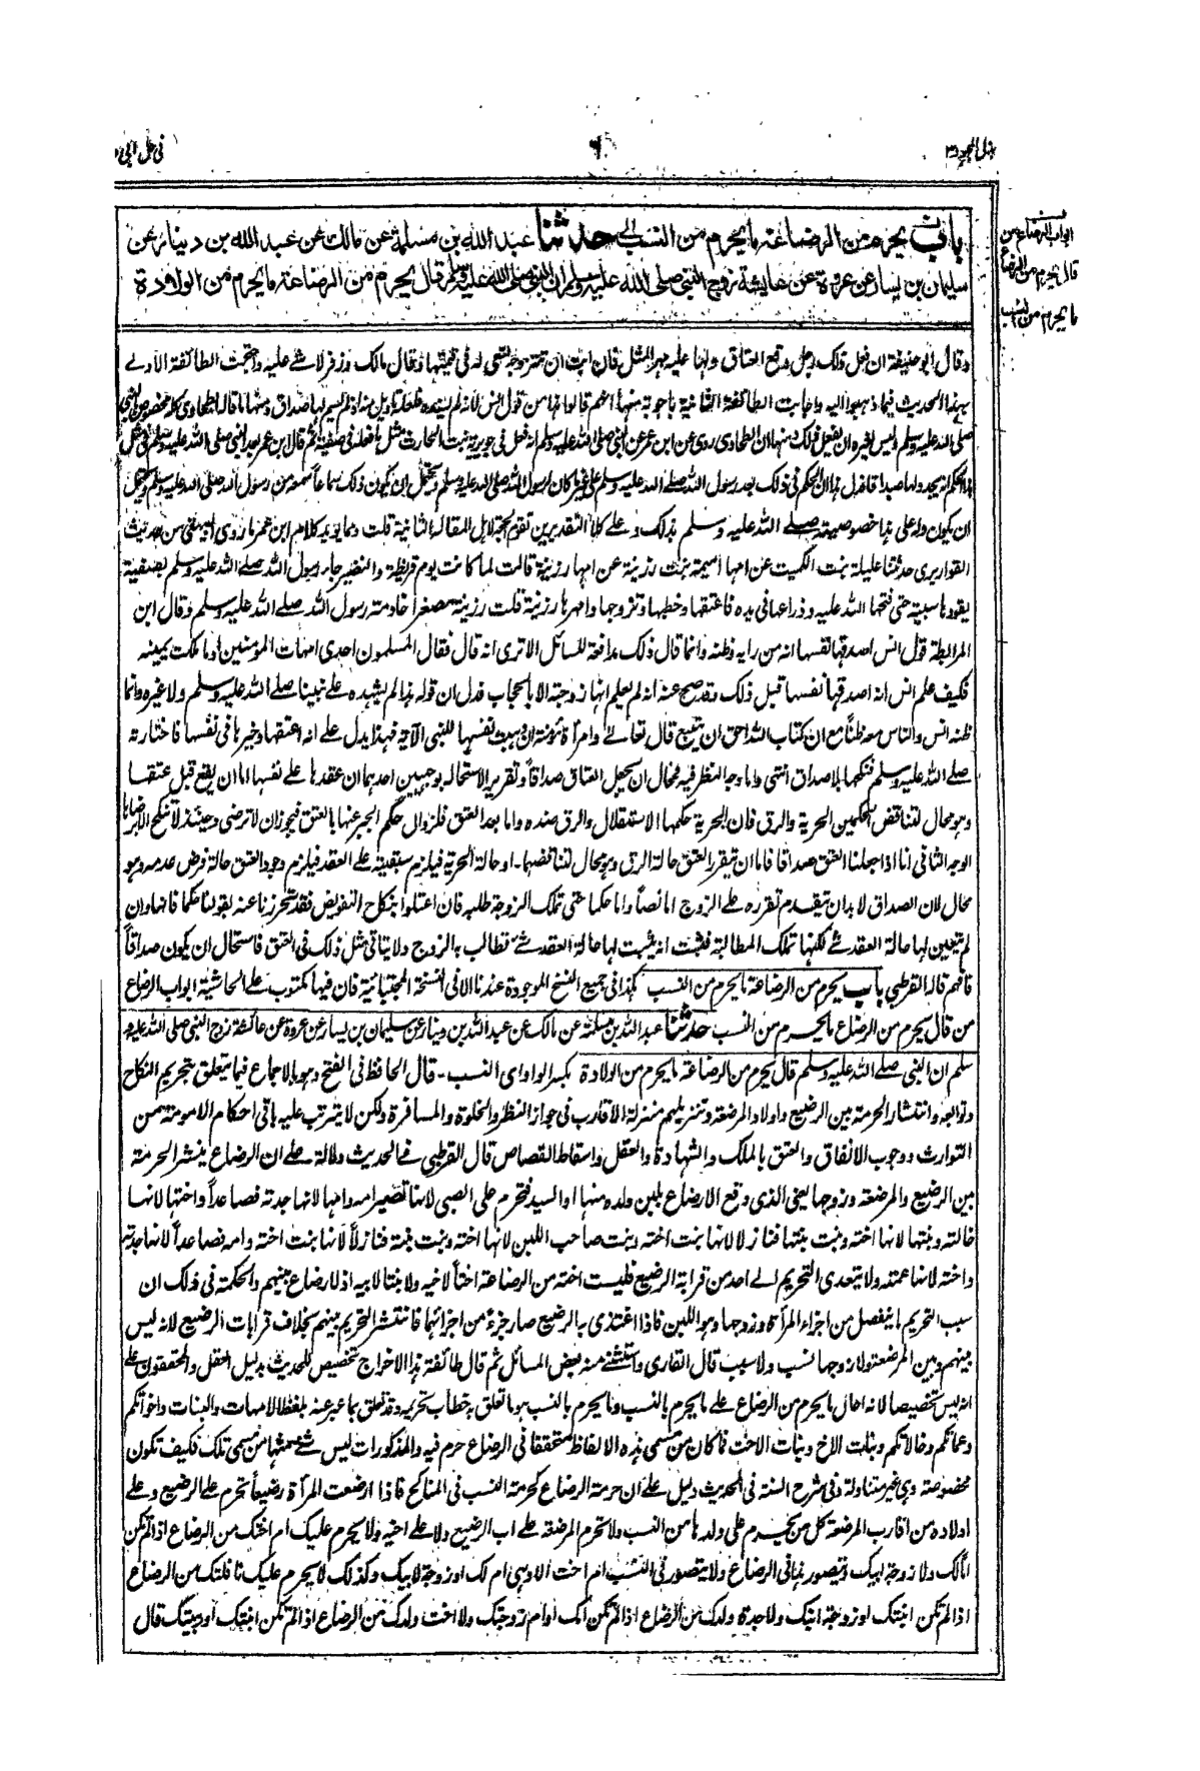 بذل المجهود
٦
في حل ابي
باب يحرم من الرضاعة ما يحرم من النسب حدثنا عبد الله بن مسلمة عن مالك عن عبد الله بن دينار عن
سليمان بن يسار عن عروة عن عايشة زوج النبي صلى الله عليه وسلم ان النبي صلى الله عليه وسلم قال يحرم من الرضاعة ما يحرم من الولادة
ابواب الرضاع من
قال يحرم من الرضاع
ما يحرم من النسب
وقال ابو حنيفة ان فعل ذلك رجل وقع العتاق ولها عليه مهر المثل فان ابت ان تتزوجه تسعى له في قيمتها وقال مالك وزفر لا شئ عليه واحتجت الطائفة الاولے
بهذا الحديث فيما ذهبوا اليه واجابت الطائفة الثانية باجوبة منها انهم قالوا انها من قول انس لانه لم يسنده فلعله تاويل منه اذ لم يسم لها صداق ومنها ما قاله الطحاوي انه مخصوص بالنبي
صلى الله عليه وسلم ليس لغيره ان يفعل ذلك ومنها ان الطحاوي روى عن ابن عمر عن النبي صلى الله عليه وسلم انه فعل في جويرية بنت الحارث مثل ما فعله في صفية ثم قال ابن عمر بعد النبي صلى الله عليه وسلم في مثل
هذا الحكم انه يجدد لها صداقا فدل هذا ان الحكم في ذلك بعد رسول الله صلى الله عليه وسلم على غير ما كان لرسول الله صلى الله عليه وسلم ويحتمل ان يكون ذلك سماعاً سمعه من رسول الله صلى الله عليه وسلم ويحتمل
ان يكون دله على هذا خصوصيته صلے الله عليه وسلم بذلك وعلے كلا التقديرين تقوم الحجة لاهل المقالة الثانية قلت ومما يويد كلام ابن عمر ما روى البيهقي من حديث
القواريرى حدثتنا عليلة بنت الكميت عن امها اميمة بنت رزينة عن امها رزينة قالت لما كانت يوم قريظة والنضير جاء رسول الله صلے الله عليه وسلم بصفية
يقودها سبية حتى فتحها الله عليه وذراعها في يده فاعتقها وخطبها وتزوجها وامهرها رزينة قلت رزينة مصغراً خادمة رسول الله صلے الله عليه وسلم وقال ابن
المرابطة قول انس اصدقها نفسها انه من رايه وظنه وانما قال ذلك مدافعة للسائل الا ترى انه قال فقال المسلمون احدى امهات المؤمنين او ما ملكت يمينه
فكيف علم انس انه اصدقها نفسها قبل ذلك وقد صح عنه انه لم يعلم انها زوجته الا بالحجاب فدل ان قوله هذا لم يشهده على نبينا صلے الله عليه وسلم ولا غيره وانما
ظنه انس والناس معه ظناً مع ان كتاب الله احق ان يتبع قال تعالے وامرأة مؤمنة ان وهبت نفسها للنبي الآية فهذا يدل على انه اعتقها وخيرها في نفسها فاختارته
صلے الله عليه وسلم فنكحها بلا صداق انتهى واما وجه النظر فيه فمحال ان يجعل العتاق صداقاً وتقرير الاستحالة بوجهين احدهما ان عقدها على نفسها اما ان يقع قبل عتقها
وهو محال لتناقض الحكمين الحرية والرق فان الحرية حكمها الاستقلال والرق ضده واما بعد العتق فلزوال حكم الجبر عنها بالعتق فيجوز ان لا ترضى وحينئذ لا تنكح الا برضاها
الوجه الثاني انا اذا جعلنا العتق صداقا فاما ان يتقرر العتق حالة الرق وهو محال لتناقضهما - او حالة الحرية فيلزم سبقيته على العقد فيلزم وجود العتق حالة فرض عدمه وهو
محال لان الصداق لا بد ان يتقدم تقرره على الزوج اما نصاً واما حكما حتى تملك الزوجة طلبه فان اعتلوا بنكاح التفويض فقد تحرزنا عنه بقولنا حكما فانها وان
لم يتعين لها حالة العقد شئ لكنها تملك المطالبة فثبت انه يثبت لها حالة العقد شئ تطالب به الزوج ولا يتاتى مثل ذلك في العتق فاستحال ان يكون صداقاً
فافهم قاله القرطبي باب يحرم من الرضاعة ما يحرم من النسب هكذا في جميع النسخ الموجودة عندنا الا في النسخة المجتبائية فان فيها مكتوب على الحاشية ابواب الرضاع
من قال يحرم من الرضاع ما يحرم من النسب حدثنا عبد الله بن مسلمة عن مالك عن عبد الله بن دينار عن سليمان بن يسار عن عروة عن عائشة زوج النبي صلى الله عليه و
سلم ان النبي صلے الله عليه وسلم قال يحرم من الرضاعة ما يحرم من الولادة بكسر الواو اى النسب - قال الحافظ فى الفتح وهو بالاجماع فيما يتعلق بتحريم النكاح
وتوابعه وانتشار الحرمة بين الرضيع واولاد المرضعة وتنزيلهم منزلة الأقارب في جواز النظر والخلوة والمسافرة ولكن لا يترتب عليه باقى احكام الامومة من
التوارث ووجوب الانفاق والعتق بالملك والشهادة والعقل واسقاط القصاص قال القرطبي في الحديث دلالة على ان الرضاع ينشر الحرمة
بين الرضيع والمرضعة وزوجها يعنى الذى وقع الارضاع بلبن ولده منها او السيد فتحرم على الصبي لانها تصير امه وامها لانها جدته فصاعداً واختها لانها
خالته وبنتها لانها اخته وبنت بنتها فنازلا لانها بنت اخته وبنت صاحب اللبن لانها اخته وبنت بنته فنازلاً لانها بنت اخته وامه فصاعداً لانها جدته
واخته لانها عمته ولا يتعدى التحريم الے احد من قرابة الرضيع فليست اخته من الرضاعة اختاً لاخيه ولا بنتا لابيه اذ لا رضاع بينهم والحكمة في ذلك ان
سبب التحريم ما ينفصل من اجزاء المرأة وزوجها وهو اللبن فاذا اغتذى به الرضيع صار جزءً من اجزائهما فانتشر التحريم بينهم بخلاف قرابات الرضيع لانه ليس
بينهم وبين المرضعة ولا زوجها نسب ولا سبب قال القارى واستثنى منه بعض المسائل ثم قال طائفة هذا الاخراج تخصيص للحديث بدليل العقل والمحققون على
انه ليس تخصيصا لانه احال ما يحرم من الرضاع على ما يحرم بالنسب وما يحرم بالنسب هو ما تعلق به خطاب تحريمه وقد تعلق بما عبر عنه بلفظ الامهات والبنات واخواتكم
وعماتكم وخالاتكم وبنات الاخ وبنات الاخت فما كان من مسمى هذه الالفاظ متحققا في الرضاع حرم فيه والمذكورات ليس شئ منها من مسمى تلك فكيف تكون
مخصوصة وهي غير متناولة وفي شرح السنة في الحديث دليل على ان حرمة الرضاع كحرمة النسب في المناكح فاذا ارضعت المرأة رضيعاً تحرم على الرضيع وعلى
اولاده من اقارب المرضعة كل من يحرم على ولدها من النسب ولا تحرم المرضعة على اب الرضيع ولا على اخيه ولا يحرم عليك ام اختك من الرضاع اذا لم تكن
امالك ولا زوجة ابيك ويتصور هذا في الرضاع ولا يتصور في النسب ام اخت الا وهى ام لك او زوجة لابيك وكذلك لا يحرم عليك نافلتك من الرضاع
اذا لم تكن ابنتك او زوجة ابنك ولا جدة ولدك من الرضاع اذا لم تكن امك او ام زوجتك ولا اخت ولدك من الرضاع اذا لم تكن ابنتك او ربيبتك قال